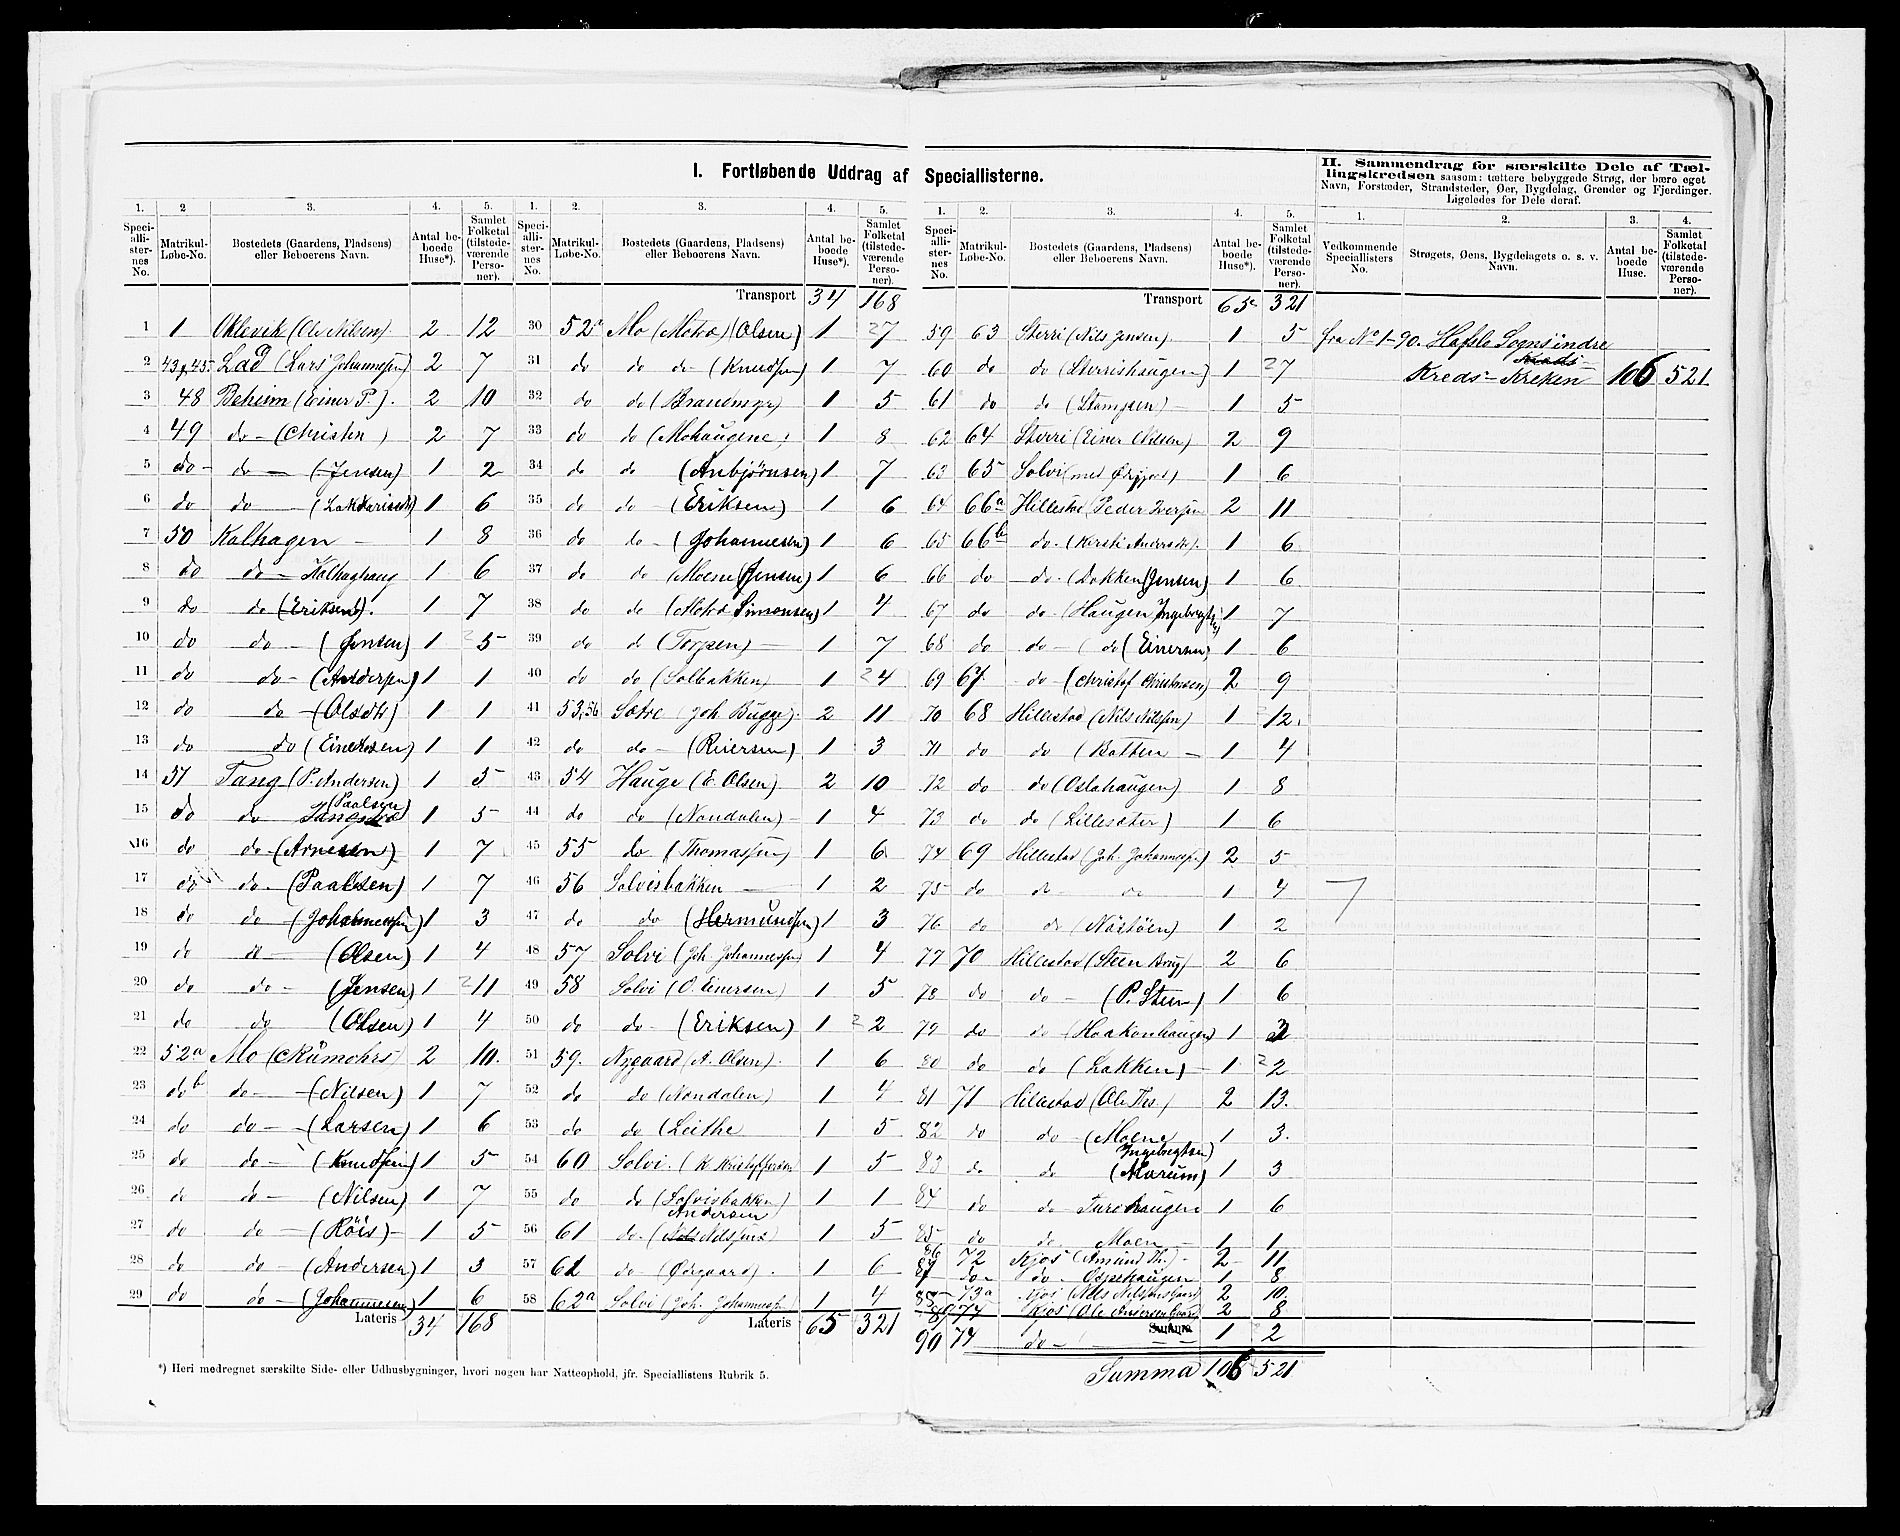 I. Fortløbende Uddrag af Speciallisterne.
II. Sammendrag for særskilte Dele af Tæl-
lingskredsen saasom: tættere bebyggede Strøg, der bære eget
Navn, Forstæder, Strandsteder, Øer, Bygdelag, Grender og Fjerdinger.
Ligeledes for Dele deraf.
1. 2 3. 4. 5. 1. 2. 3. 4. 5. 1. 2. 3. 4. 5. 1. 2. 3. 4.
Speci-alli-ster-nes No. Matrikul-Løbe-No. Bostedets (Gaardens, Pladsens) eller Beboerens Navn. Antal be-boede Huse*). Samlet Folketal (tilstede-værende Perso-ner).
Speci-alli-ster-nes No. Matrikul-Løbe-No. Bostedets (Gaardens, Pladsens) eller Beboerens Navn. Antal be-boede Huse*). Samlet Folketal (tilstede-værende Perso-ner).
Speci-alli-ster-nes No. Matrikul-Løbe-No. Bostedets (Gaardens, Pladsens) eller Beboerens Navn. Antal be-boede Huse*). Samlet Folketal (tilstede-værende Perso-ner).
Vedkommende Speciallisters No. Strøgets, Øens, Bygdelagets o. s. v. Navn. Antal be-boede Huse. Samlet Folketal (tilstede-værende Perso-ner).
1 1 (Ole Nilsen) 2 12
2 43,45 Lad (Lars Johannessen) 2 7
3 48 Beheim (Einer P.). 2 10
4 49 do - (Christen) 2 7
5 do - do - (Jensen) 1 2
6 do do 1 6
7 50 Kalhagen - 1 8
8 do do - Kalhaghaug 1 6
9 do do (Eriksen). 1 7
10 do do - (Jensen) 1 5
11 do do - (Andersen) 1 1
12 do do - (Olsdtr) 1 1
13 do do (Einersen) 1 1
14 51 Tang (P. Andersen) 1 5
15 do do (Paalsen) 1 5
16 do do - (Arnesen) 1 7
17 do do - (Paalsen) 1 7
18 do do - (Johannessen) 1 3
19 do do - (Olsen) 1 4
20 do do - (Jensen) 1 11
21 do do (Olsen) 1 4
22 52a Mo (Rumohrs) 2 10.
23 do b do - (Nilsen) 1 7
24 do do - (Larsen) 1 6
25 do do - (Knudsen) 1 5
26 do do - (Nilsen) 1 7
27 do do - (Röis) - 1 5
28 do do - (Andersen) 1 3
29 do do - (Johannesen) 1 6
Lateris 34 168
Transport 34 168
30 52a Mo (Moteø) (Olsen) 1 7
31 do do do - (Knudsen) 1 7
32 do do 1 5
33 do do (Mohaugene) 1 8
34 do do (Anbjörnsen) 1 7
35 do do - (Eriksen) 1 6
36 do do - (Johannesen) 1 6
37 do do (Moene (Jensen) 1 6
38 do do (Simonsen) 1 4
39 do do (Torpen) - 1 7
40 do do (Solbakken) 1 4
41 53,56 Sætre (Joh Bugge). 2 11
42 do do - 1 3
43 54 Hauge (E. Olsen) 2 10
44 do do (Nondalen) - 1 4
45 55 do (Thomassen) 1 6
46 56 Solvisbakken - 1 2
47 do do (Hermundsen) 1 3
48 57 Solvi (Joh. Johannessen) 1 4
49 58 Solvi (O. Einersen) 1 5
50 do do - (Eriksen) 1 2
51 59. Nygaard (A. Olsen). 1 6
52 do do (Nondalen) 1 4
53 do do (Leithe 1 5
54 60 Solvi. (K Kristofferson) 1 5
55 do do (Solvisbakken) Andersen 1 1
56 61 do - 1 5
57 61 do - (Ødegaard). 1 6
58 62a Solvi (Joh. Johannessen) 1 4
Lateris 65 321
Transport 65 321
59 63 Sterri (Nils Jensen) 1 5
60 do do (Sterrishaugen) 1 7
61 do do (Stampen) - 1 5
62 64 Sterri (Einer Nilsen) 2 9
63 65 Solvi 1 6
64 66a Hillestad (Peder Iversen 2 11
65 66b do. (Kersti Andersdtr). 1 6
66 do do. (Bakken (Jensen) 1 6
67 do do (Haugen Ingebrigtsen) 1 7
68 do do - (do (Einersen) 1 6
69 67 do - (Christof Christensen) 2 9
70 68 Hillestad (Nils Nilssen) 1 12.
71 do do (Botten - 1 4
72 do do (Oslahaugen) 1 8
73 do do (Lillesæter) 1 6
74 69 Hillestad (Joh. Johannessen) 2 5
75 do do do 1 4
76. do do (Nöstöen) 1 2
77 70 Hillestad (Steen Brug) 2 6
78 do do - (P. Steen) 1 6
79 do do (Haakonhaugen) 1
80 do do (Bakken) - 1 2
81 71 Hillestad (Ole Ths.) 2 13.
82 do do (Moene Ingebrigtsen 1 3.
83 do do (Marum) 1 3
84 do do Turehaugen 1 6
85 do do Moen - 1 1
86 72 Kjos (Amund Th.) - 2 11
87 do - do - Ospehaugen 1 8
88 73a Kjos (Nils Nilssens Gaard) 2 10.
89 74 Kjos (Ole Andersens Gaard 2 8
90 74 do - Summa 1 2
Summa 106 521
fra No 1-90. Hafslo Sogns indre
Kreds - Kreken 106 521
*) Heri medregnet særskilte Side- eller Udhusbygninger, hvori nogen har Natteophold, jfr. Speciallistens Rubrik 5.